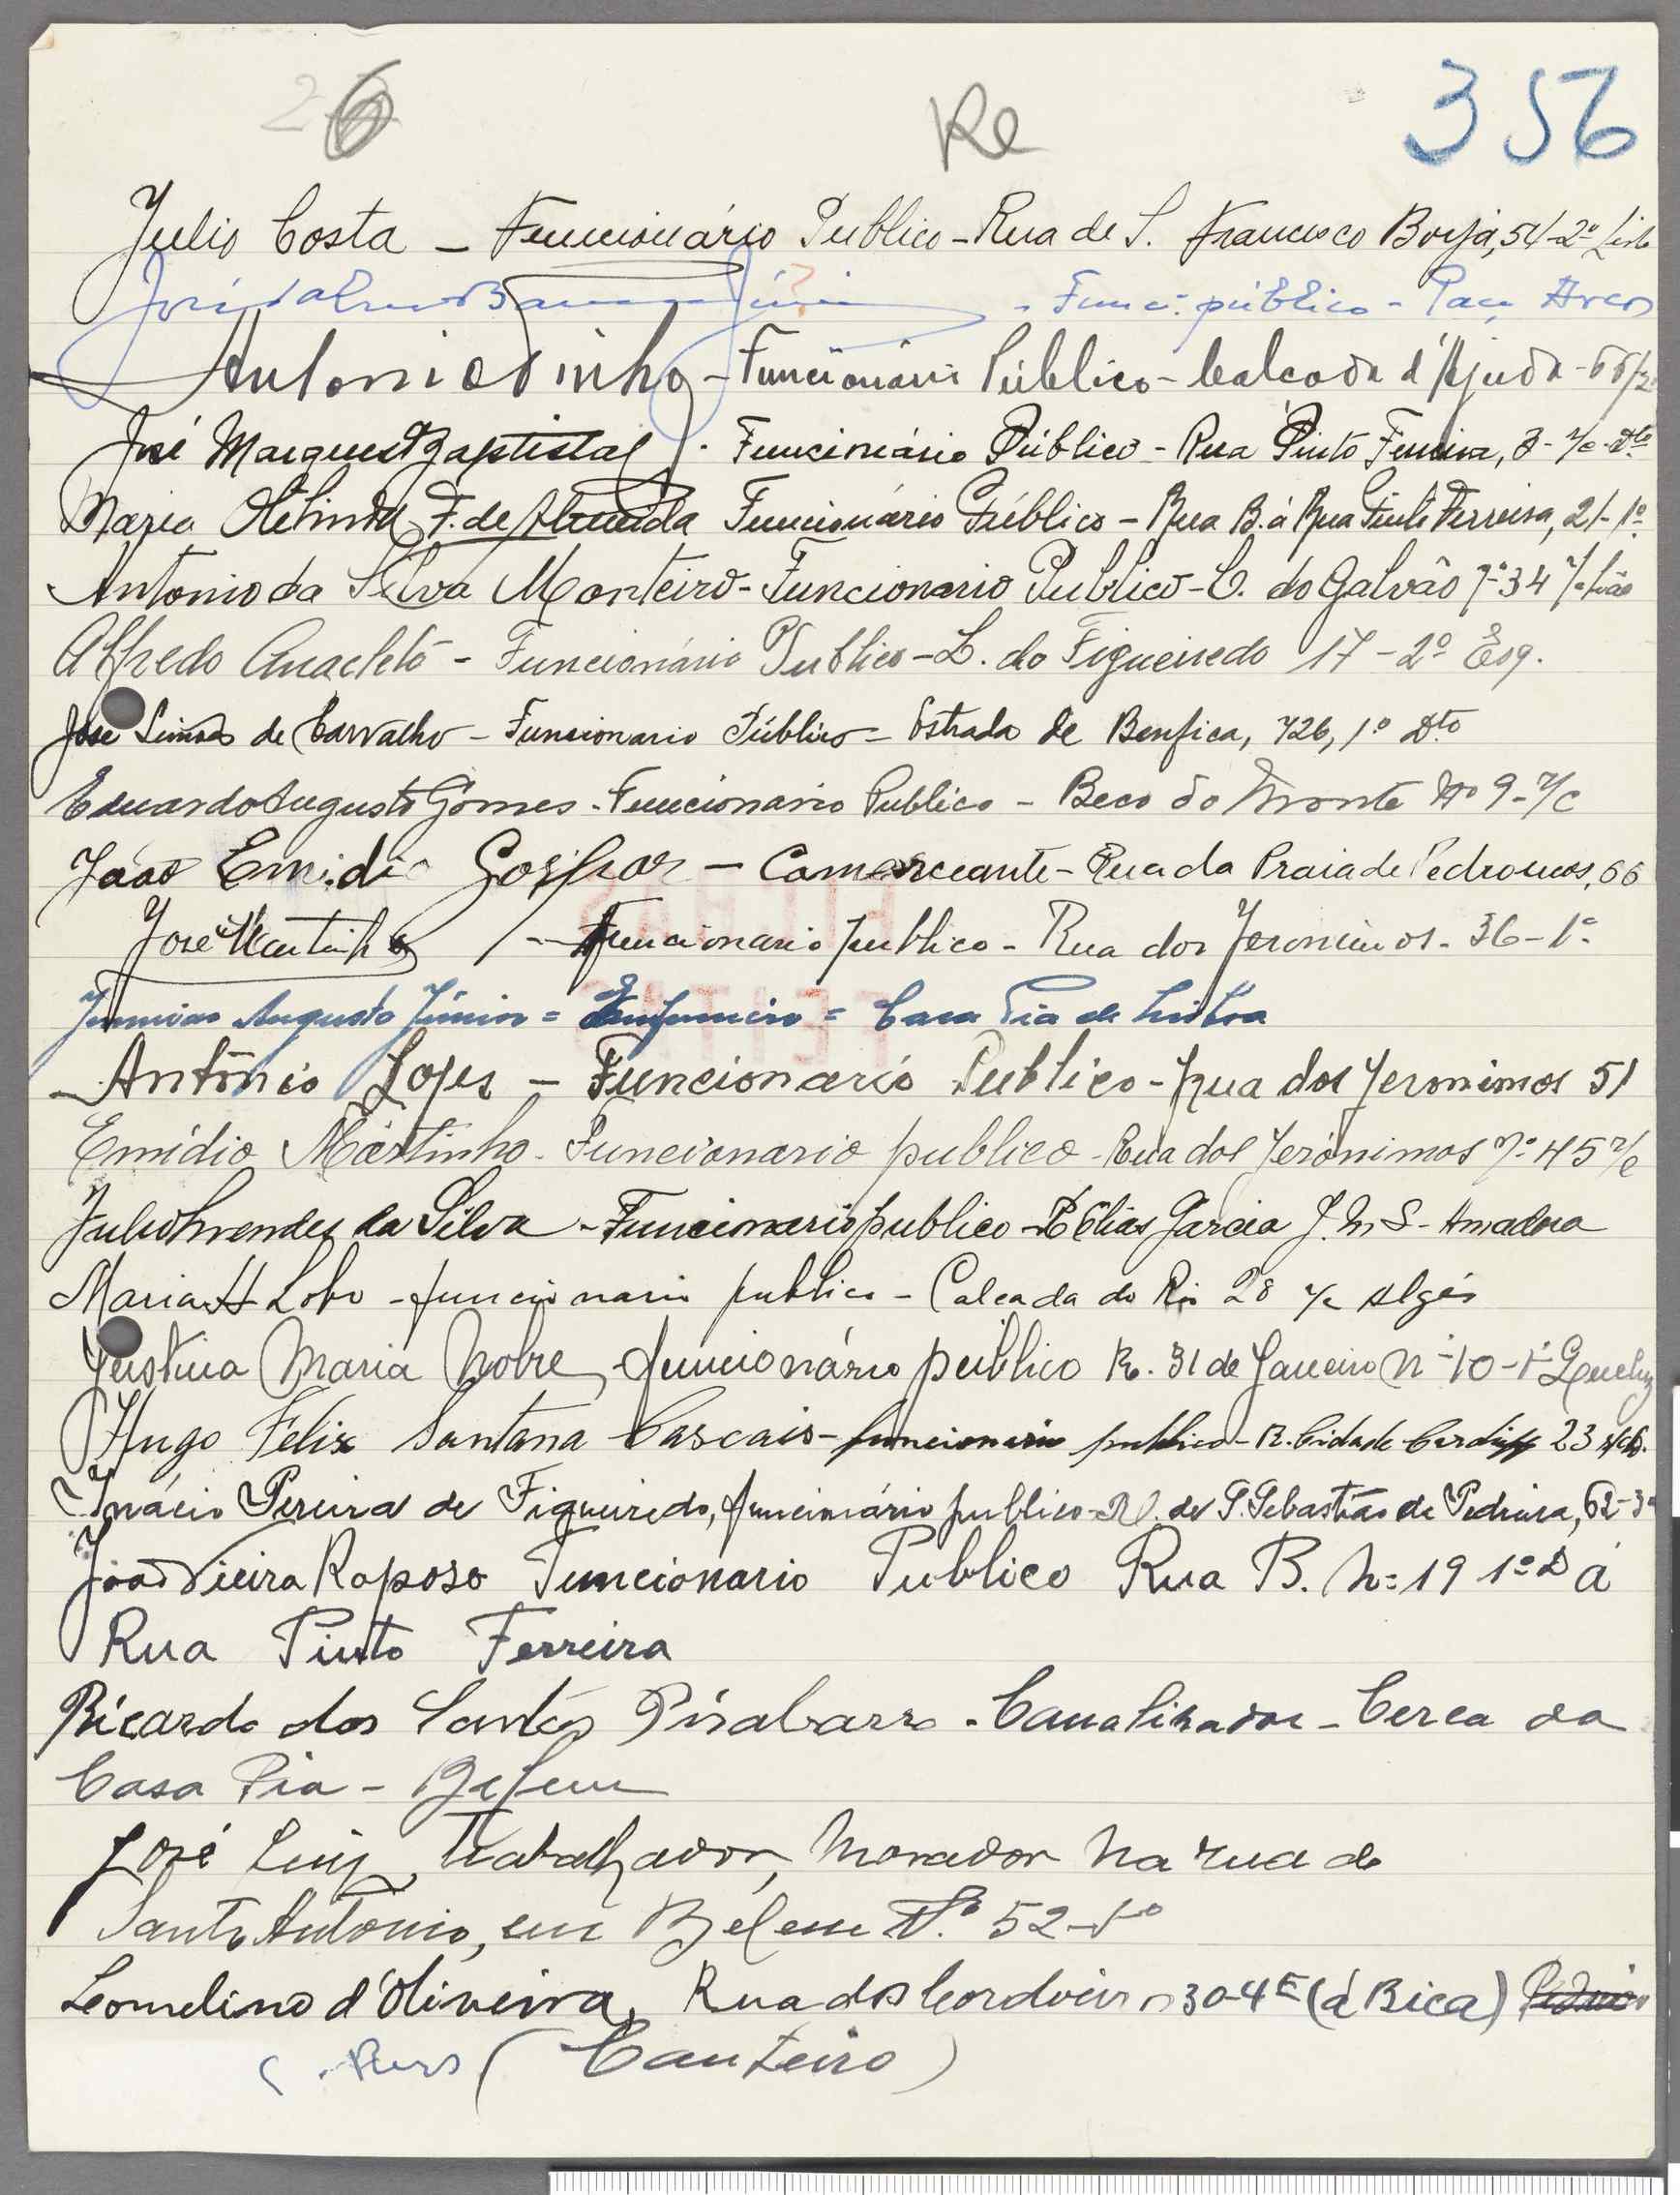 6 Re 356
Julio Costa - Funcionário Publico - Rua de S. Francisco Borja, 54-2º
- Func. público - Paço Arcos
Antonio Pinho - Funcionário Público - Calçada d'Ajuda - 66
José Marques Baptista - Funcionário Público - Rua Pinto Ferreira, 3 - r/c - Dto
Maria F. de Almeida Funcionário Público - Rua B. á Rua Pinto Ferreira, 21-1º
Antonio da Silva Monteiro - Funcionario Publico - C. do Galvão nº 34
Alfredo Anacleto - Funcionário Publico - L. do Figueiredo 17 - 2º Esq.
José Simões de Carvalho - Funcionario Público - Estrada de Benfica, 726, 1º Dto
Eduardo Augusto Gomes - Funcionario Publico - Beco do Monte Nº 9 - r/c
João Emidio Gaspar - Comerciante - Rua da Praia de Pedrouços, 66
José Martinho - Funcionario publico - Rua dos Jeronimos - 36 - 1º
Augusto Júnior = Enfermeiro = Casa Pia de Lisboa
António Lopes - Funcionario Publico - Rua dos Jeronimos 51
Emídio Martinho - Funcionario publico - Rua dos Jerónimos nº 45 r/c
Julio Mendes da Silva - Funcionario publico - R Elias Garcia J. M. S - Amadora
Maria H Lobo - funcionario publico - Calçada do Rio 28 r/c Algés
Justina Maria Nobre, funcionário público R. 31 de Janeiro nº 10 - 1º Queluz
Hugo Felix Santana Cascais - funcionario publico - R. Cidade Cardiff 23
Inácio Pereira de Figueiredo, funcionário publico - R. de S. Sebastião da Pedreira, 62-3º
João Vieira Raposo Funcionario Publico Rua B. Nº 19 1º D á
Rua Pinto Ferreira
Ricardo dos Santos Pisabarro - Canalizador - Cerca da
Casa Pia - Belem
José Luiz, Trabalhador, Morador na rua de
Santo Antonio, em Belem Nº 52-1º
Leonelino d'Oliveira, Rua dos Cordoeiros 30-4º (á Bica)
(Canteiro)